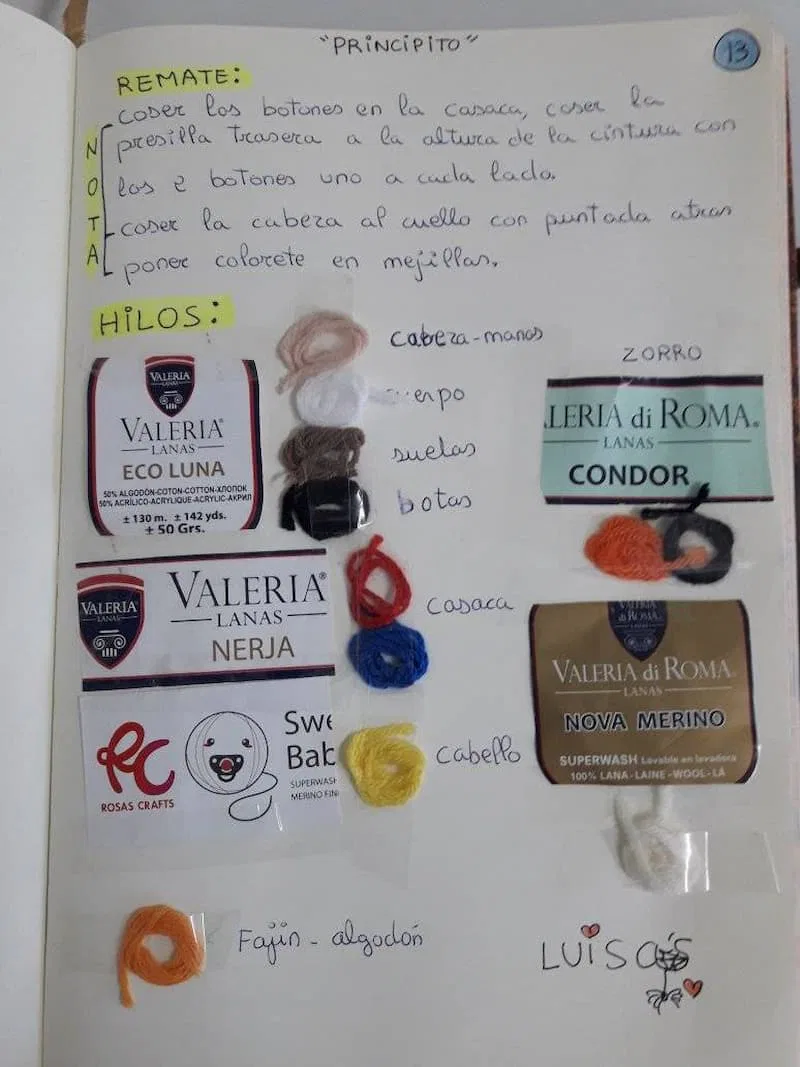 "PRINCIPITO"
13
REMATE:
NOTA
coser los botones en la casaca, coser la
presilla trasera a la altura de la cintura con
los 2 botones uno a cada lado.
coser la cabeza al cuello con puntada atras
poner colorete en mejillas.
HILOS:
cabeza-manos
erpo
suelas
botas
VALERIA
LANAS
VALERIA®
LANAS
ECO LUNA
50% ALGODÓN-COTON-COTTON-ХЛОПОК
50% ACRÍLICO-ACRYLIQUE-ACRYLIC-АКРИЛ
± 130 m. ± 142 yds.
± 50 Grs.
ZORRO
LERIA di ROMA®
LANAS
CONDOR
VALERIA
LANAS
VALERIA®
LANAS
NERJA
casaca
VALERIA
di ROMA
VALERIA di ROMA
LANAS
NOVA MERINO
SUPERWASH Lavable en lavadora
100% LANA-LAINE-WOOL-LÃ
RC
ROSAS CRAFTS
Swe
Bab
SUPERWASH
MERINO FIN
cabello
Fajín - algodón
LUISA'S